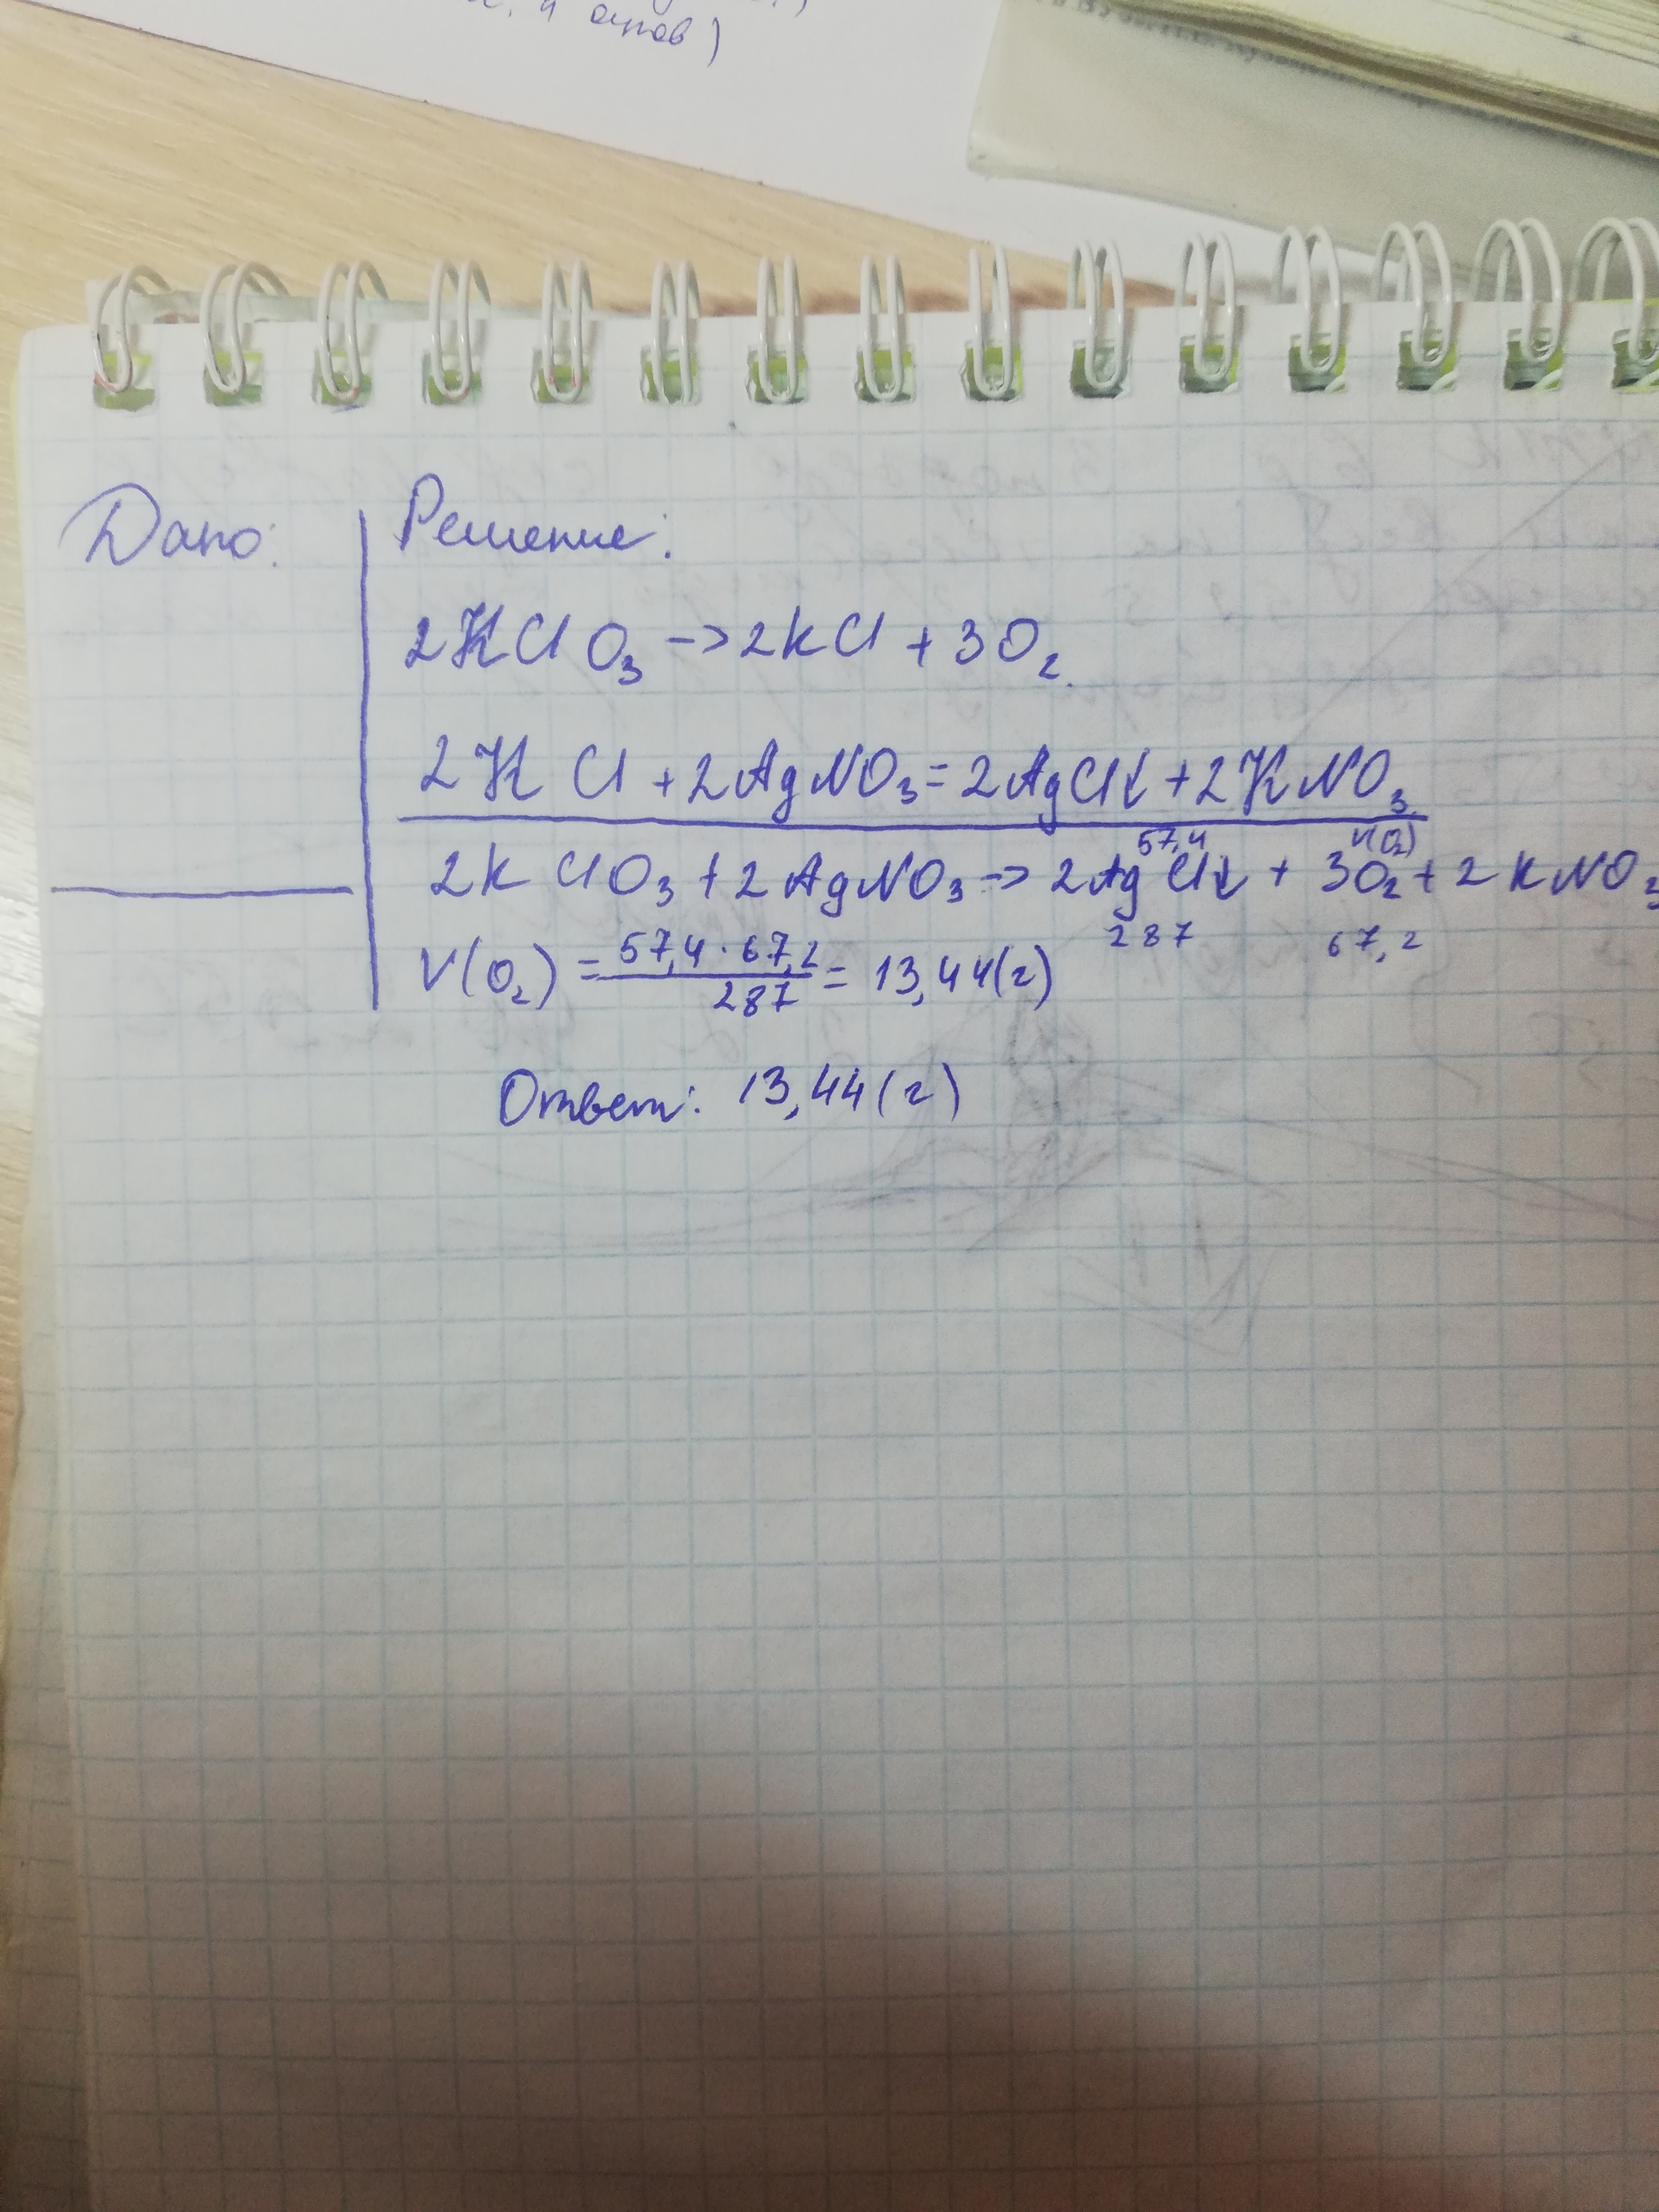 и опов)
Дано:
Решение:
2KClO₃ → 2KCl + 3O₂.
2KCl + 2AgNO₃ = 2AgCl↓ + 2KNO₃
57,4 V(O₂)
2KClO₃ + 2AgNO₃ → 2AgCl↓ + 3O₂ + 2KNO₃
287 67,2
V(O₂) = 57,4 · 67,2 / 287 = 13,44(г)
Ответ: 13,44(г)